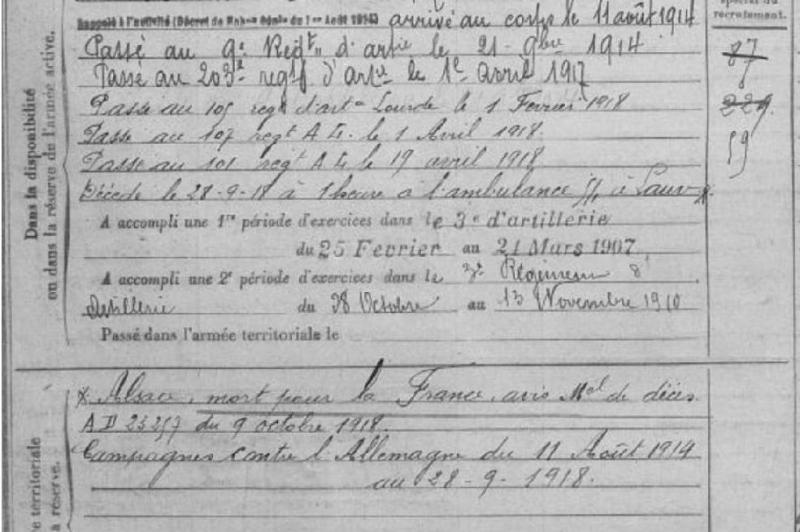 Rappelé à l'activité (Décret de Mobon Génle du 1er Août 1914) arrivé au corps le 11 août 1914
Passé au 9e Régt d'artie le 21 9bre 1914
Passé au 203e régt d'artie le 1er avril 1917
Passé au 105 régt d'artie Lourde le 1 Février 1918
Passé au 107 regt A L. le 1 Avril 1918.
Passé au 101 regt A L le 19 avril 1918
Décédé le 28-9-18 à 1 heure à l'ambulance à
A accompli une 1re période d'exercices dans le 3e d'artillerie
du 25 Fevrier au 21 Mars 1907
A accompli une 2e période d'exercices dans le 3e Régiment d'
Artillerie du 28 Octobre au 13 Novembre 1910
Passé dans l'armée territoriale le
Dans la disponibilité
ou dans la réserve de l'armée active.
recrutement.
87
229
59
Alsace, mort pour la France, avis Mel de décès
AD du 9 octobre 1918.
Campagnes contre l'Allemagne du 11 Août 1914
au 28-9-1918.
territoriale
réserve.